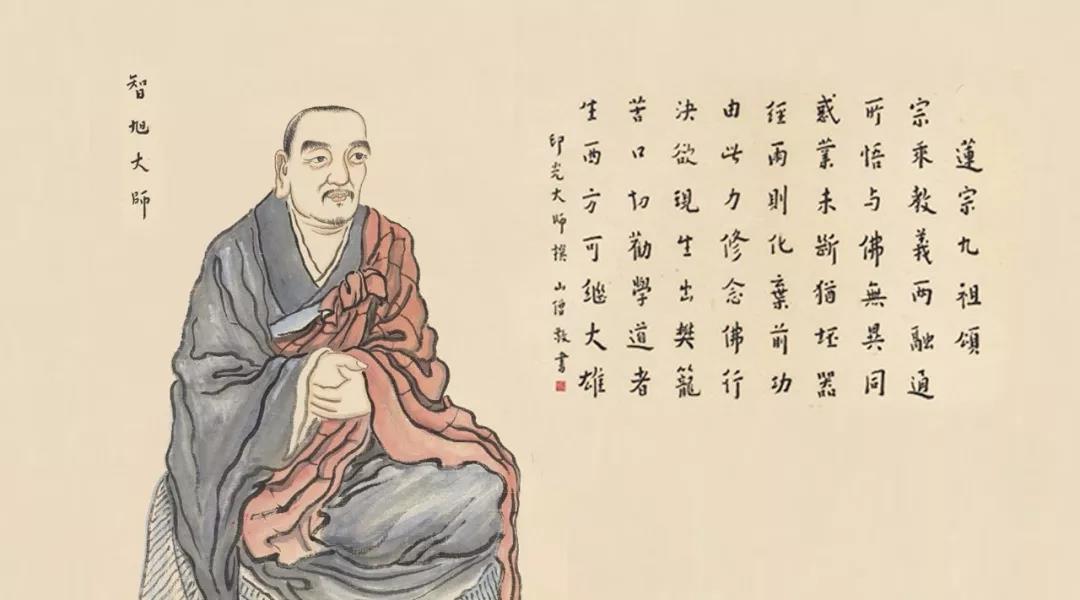 蓮宗九祖頌
宗乘教義两融通
所悟与佛無異同
惑業未斷猶坯器
經雨則化棄前功
由此力修念佛行
決欲現生出樊籠
苦口切勸學道者
生西方可繼大雄
印光大師撰 山僧書
智旭大師